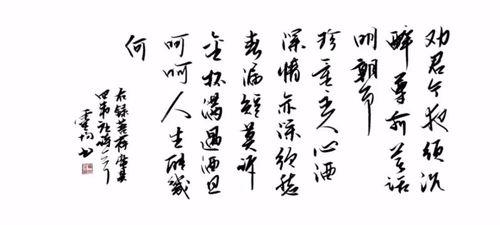 劝君今夜须沉
醉尊前莫话
明朝事
珍重主人心酒
深情亦深须愁
春漏短莫诉
金杯满遇酒且
呵呵人生能几
何
右录